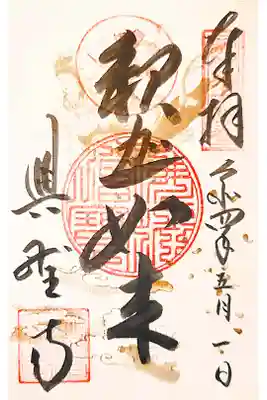 奉拝
令和四年五月一日
釈迦如来
興聖寺